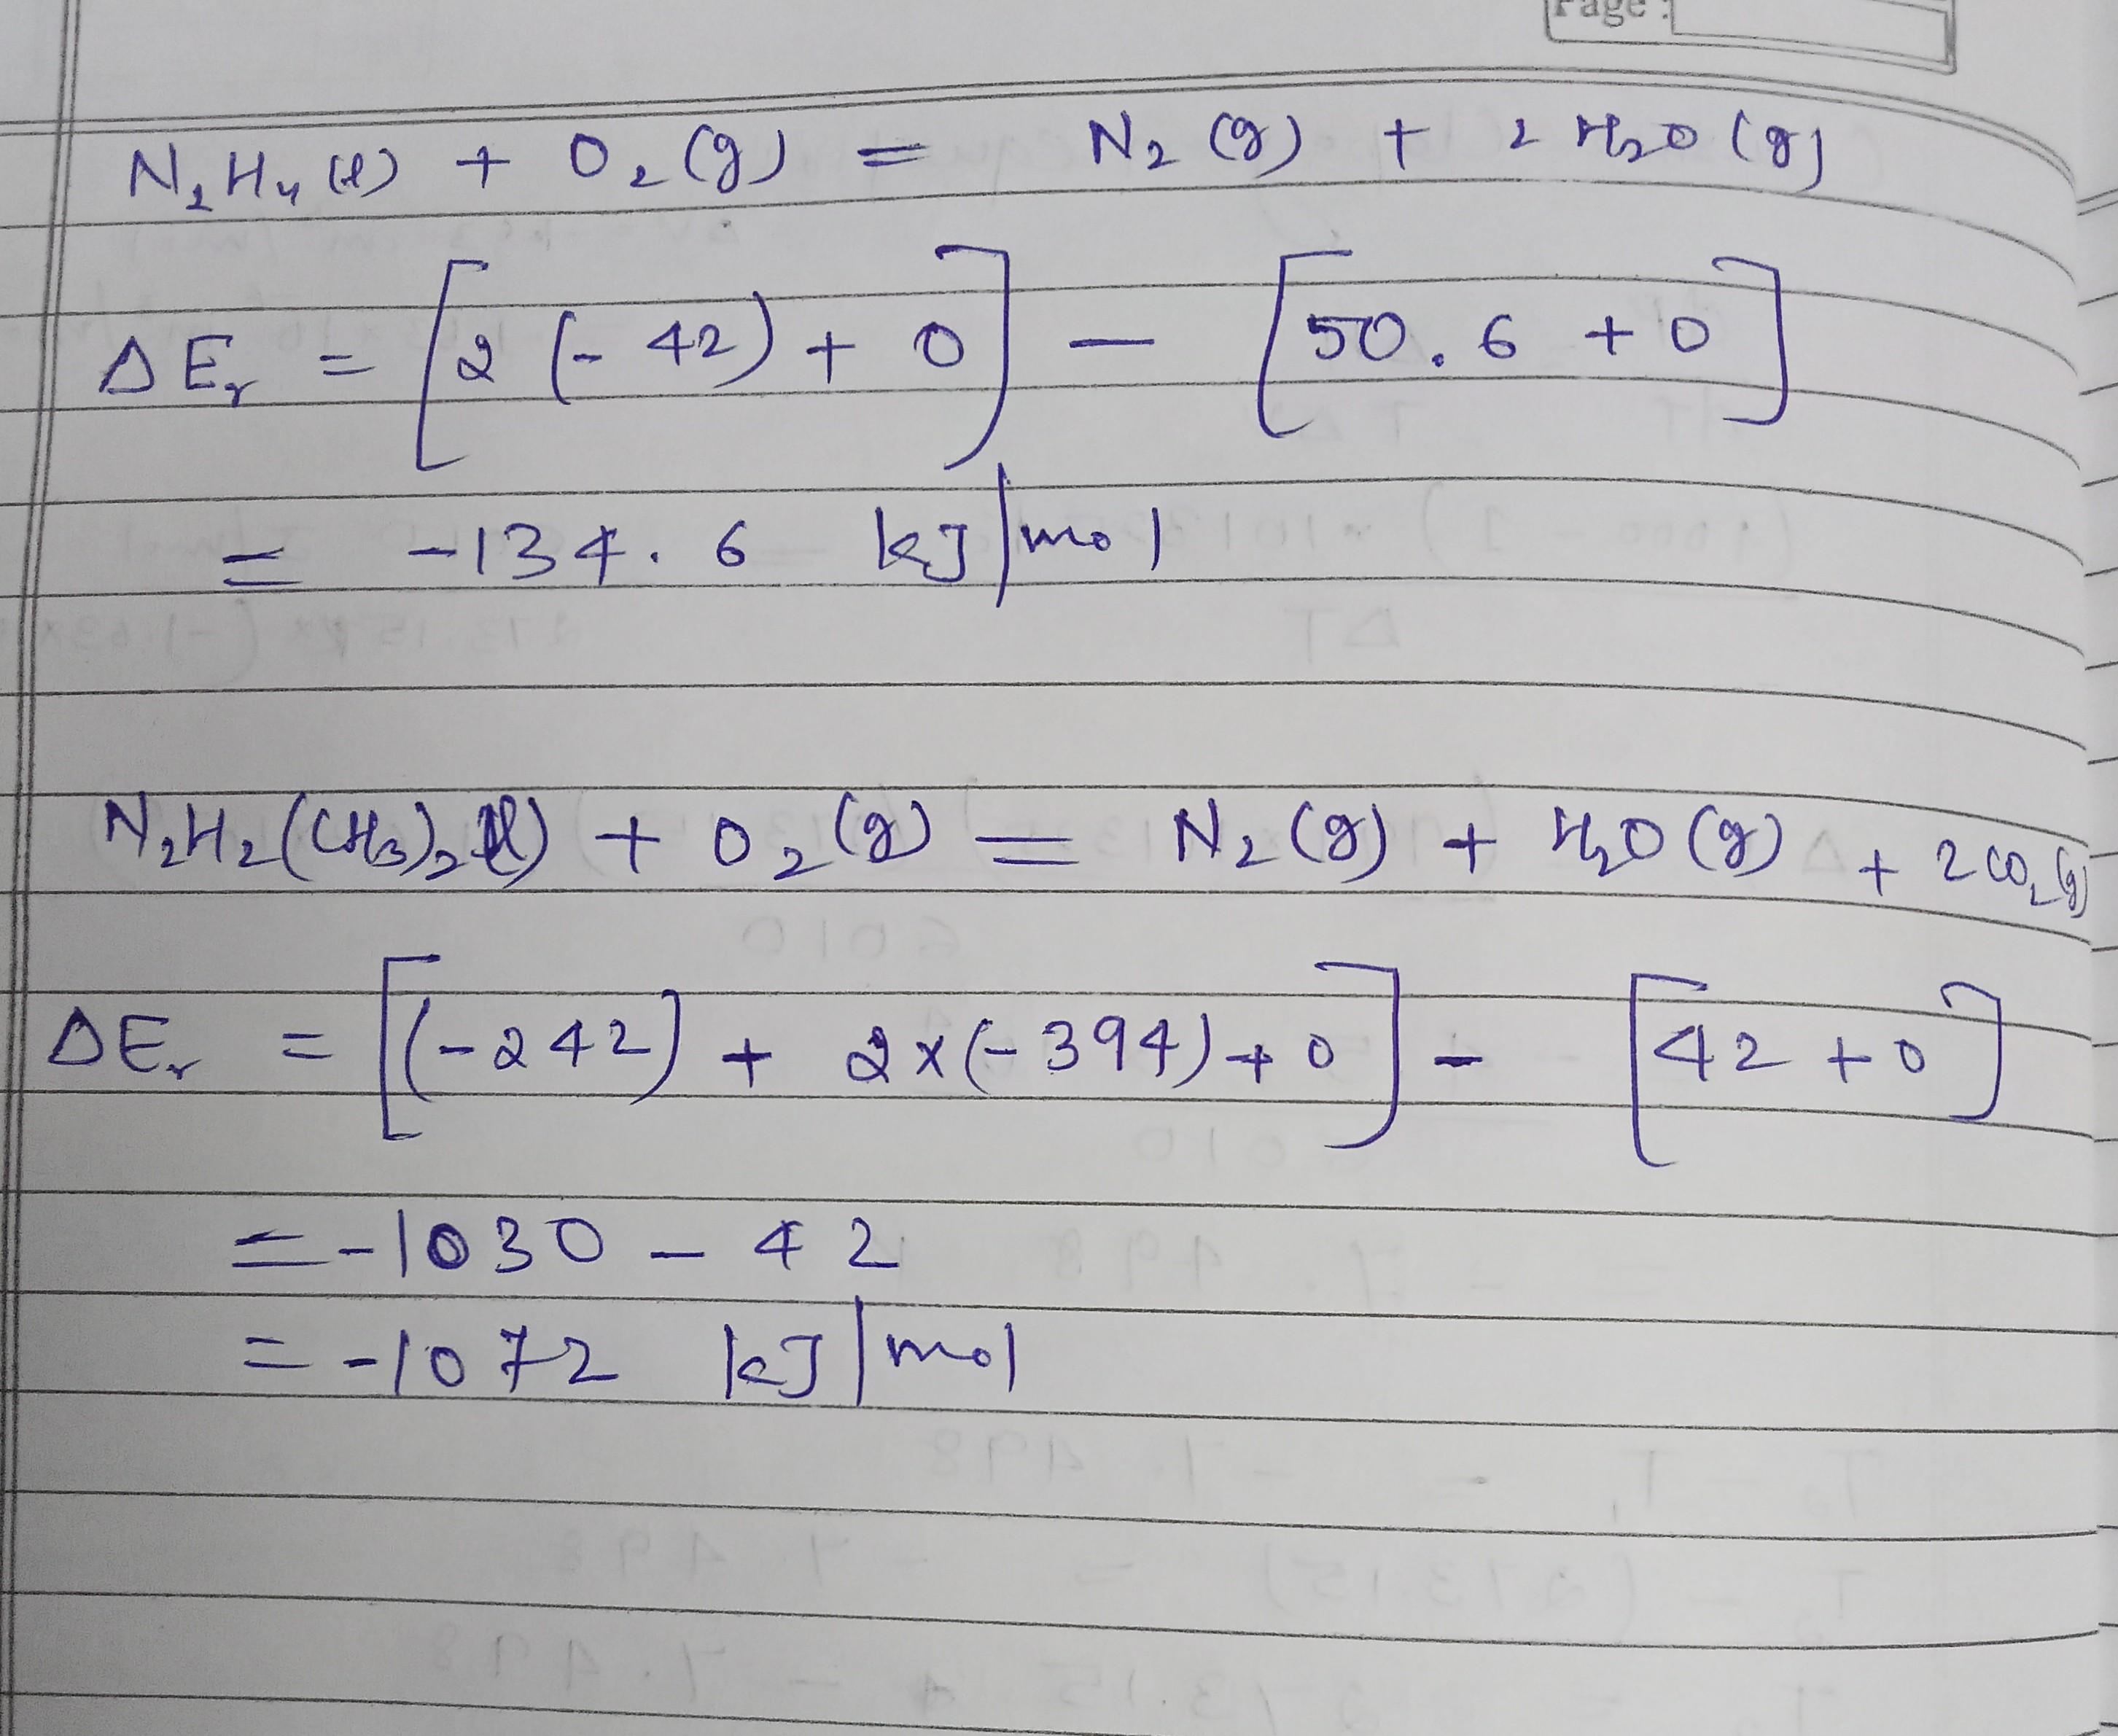 Page :
N₂H₄ (l) + O₂ (g) = N₂ (g) + 2 H₂O (g)
ΔEᵣ = [2 (- 42) + 0] - [50.6 + 0]
= -134.6 kJ/mol
N₂H₂(CH₃)₂ (l) + O₂ (g) = N₂ (g) + H₂O (g) + 2CO₂ (g)
ΔEᵣ = [(-242) + 2×(-394) + 0] - [42 + 0]
= -1030 - 42
= -1072 kJ/mol